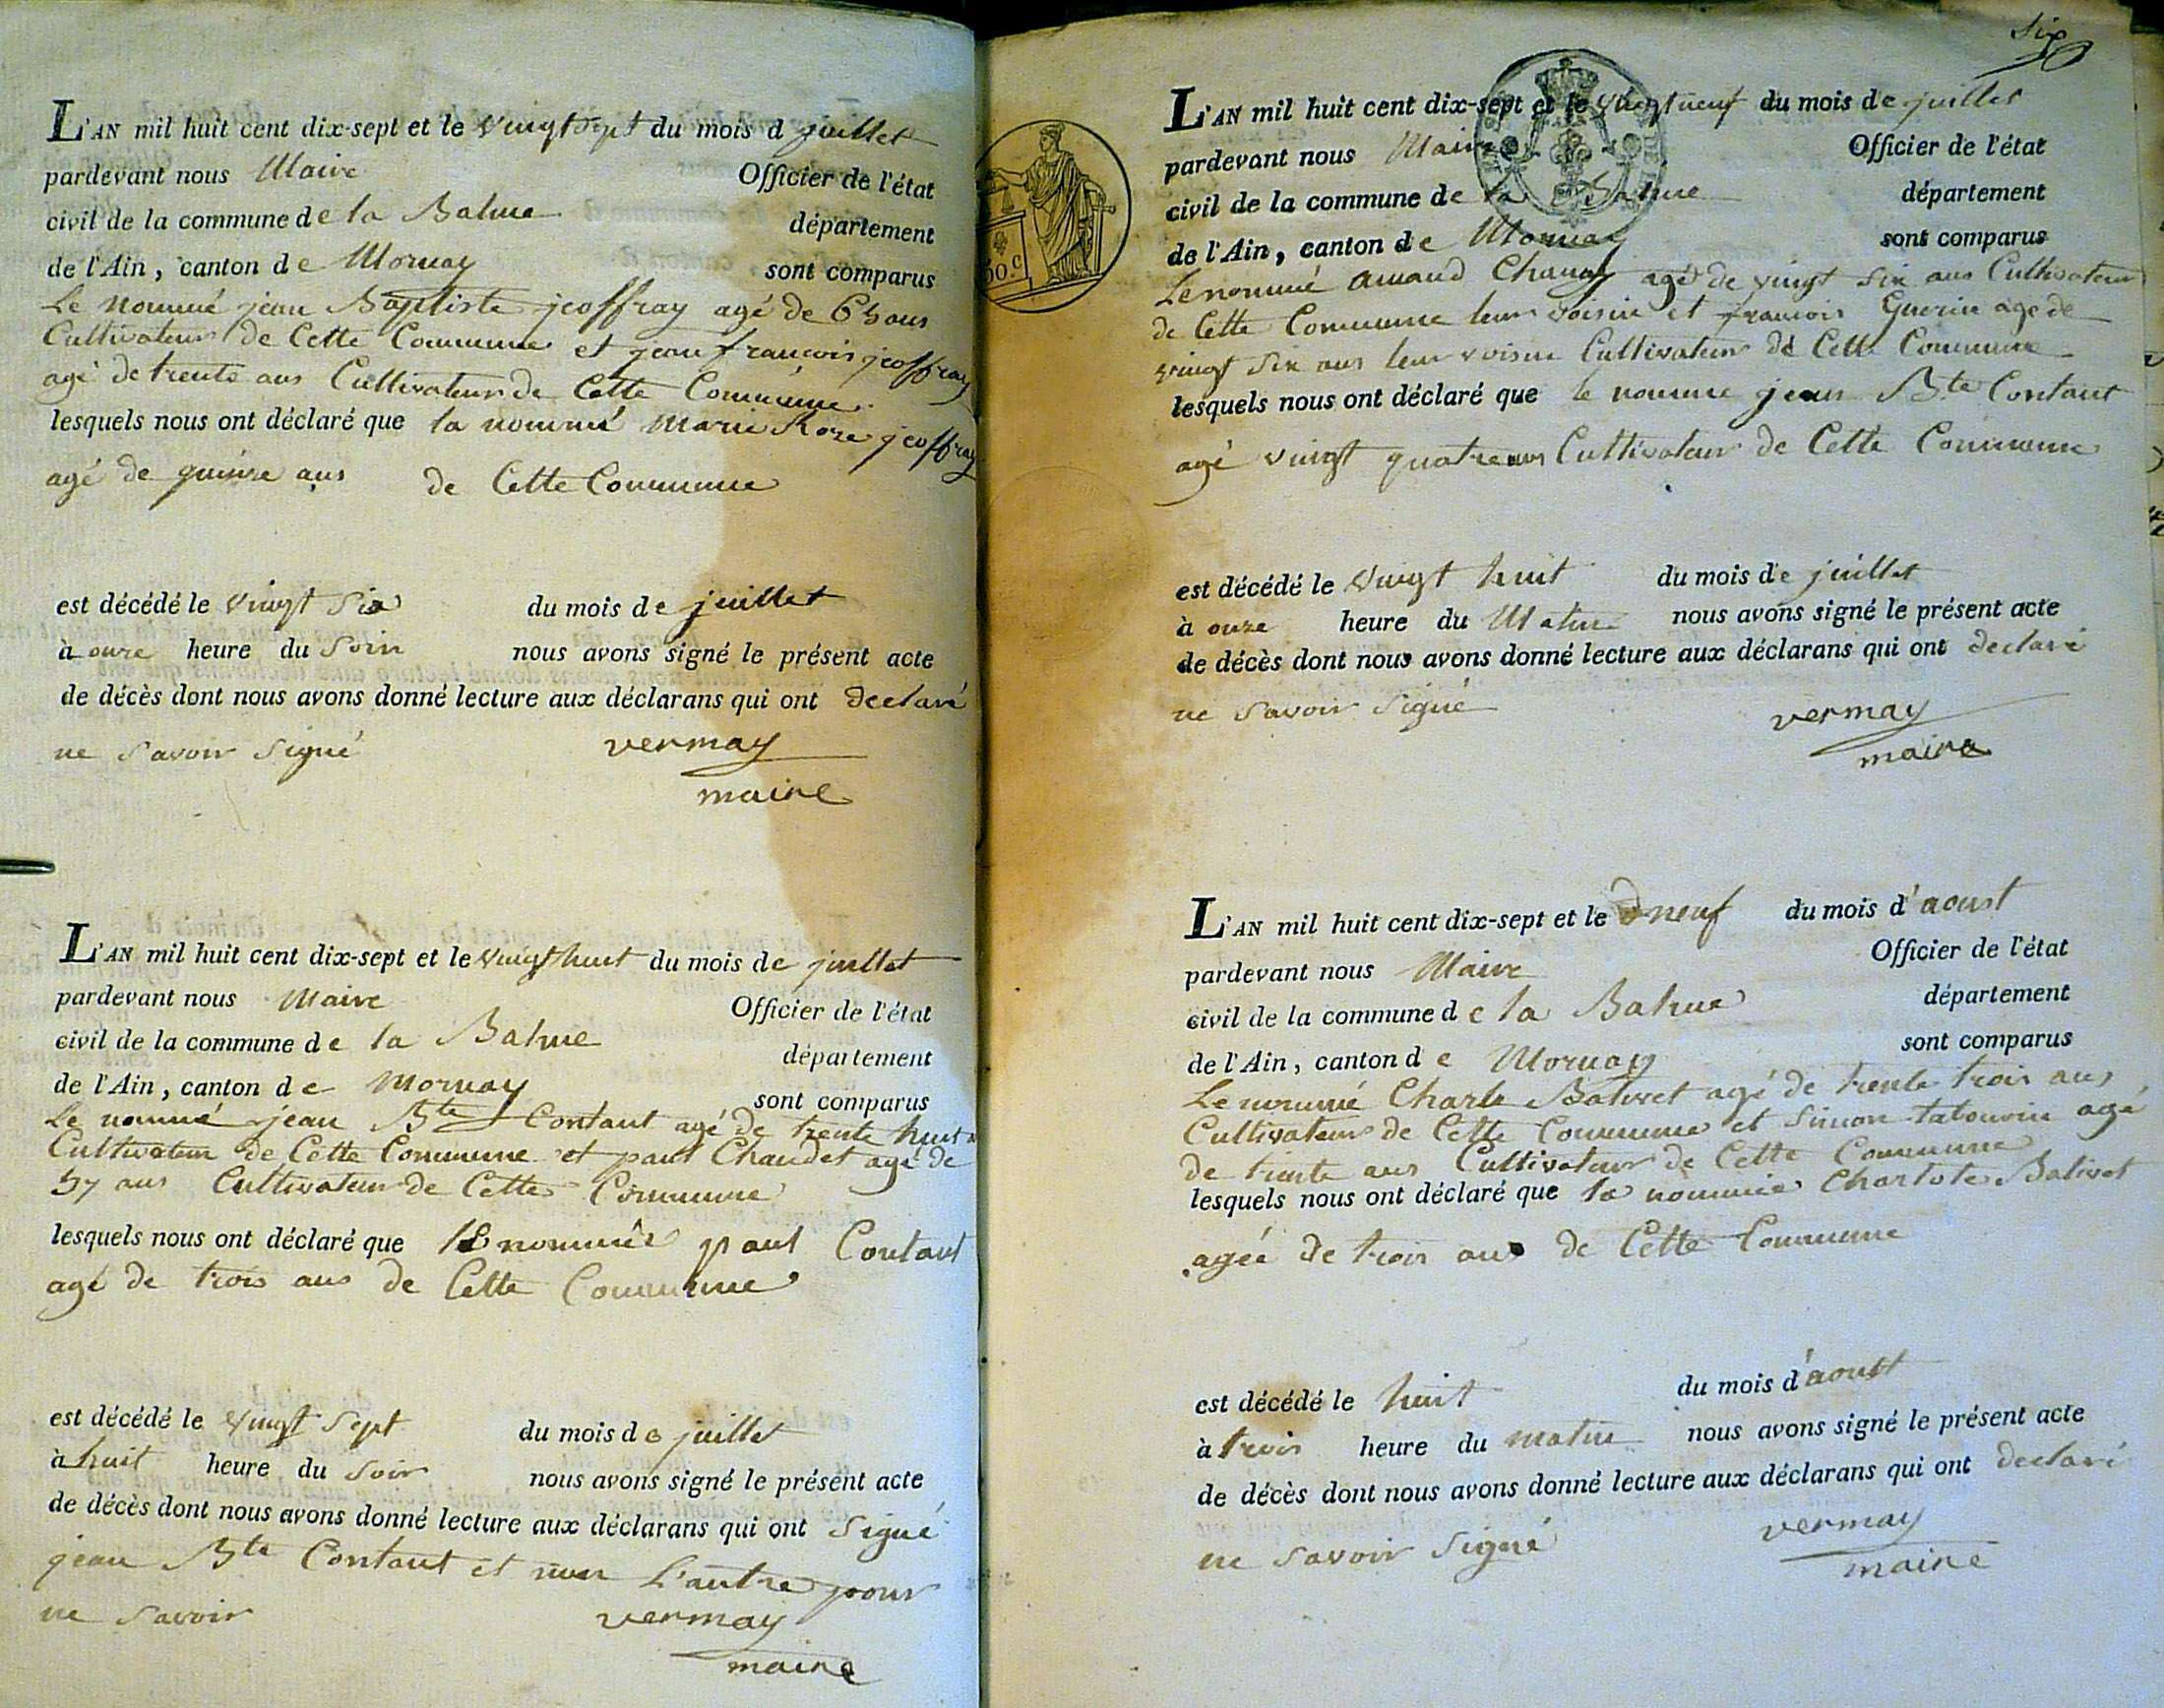 L'AN mil huit cent dix-sept et le vingt sept du mois d juillet
pardevant nous Maire Officier de l'état
civil de la commune de la Balme département
de l'Ain, canton de Mornay sont comparus
Le nommé jean Baptiste jeoffray agé de 65 ans
Cultivateur de Cette Commune et jean francois jeoffray
agé de trente ans Cultivateur de Cette Commune
lesquels nous ont déclaré que la nommé Marie Roze jeoffray
agé de quinze ans de Cette Commune
est décédé le vingt Six du mois de juillet
à onze heure du Soir nous avons signé le présent acte
de décès dont nous avons donné lecture aux déclarans qui ont declaré
ne Savoir Signé vermay
maire
L'AN mil huit cent dix-sept et le vingt huit du mois de juillet
pardevant nous Maire Officier de l'état
civil de la commune de la Balme département
de l'Ain, canton de Mornay sont comparus
Le nommé jean Bte Contant agé de trente huit
Cultivateur de Cette Commune et paul Chaudet agé de
57 ans Cultivateur de Cette Commune
lesquels nous ont déclaré que le nommé paul Contant
agé de trois ans de Cette Commune
est décédé le vingt Sept du mois de juillet
à huit heure du Soir nous avons signé le présent acte
de décès dont nous avons donné lecture aux déclarans qui ont Signé
jean Bte Contant et non L'autre pour
ne Savoir vermay
maire
Six
L'AN mil huit cent dix-sept et le vingt neuf du mois de juillet
pardevant nous Maire Officier de l'état
civil de la commune de la Balme département
de l'Ain, canton de Mornay sont comparus
Le nommé amand Chanay agé de vingt Six ans Cultivateur
de Cette Commune leur voisin et francois Guerin age de
vingt Six ans leur voisin Cultivateur de Cette Commune
lesquels nous ont déclaré que le nomme jean Bte Contant
agé vingt quatre ans Cultivateur de Cette Commune
est décédé le vingt huit du mois de juillet
à onze heure du Matin nous avons signé le présent acte
de décès dont nous avons donné lecture aux déclarans qui ont declaré
ne Savoir Signé vermay
maire
50.c
L'AN mil huit cent dix-sept et le neuf du mois d'aoust
pardevant nous Maire Officier de l'état
civil de la commune de la Balme département
de l'Ain, canton de Mornay sont comparus
Le nommé Charle Balivet agé de trente trois ans
Cultivateur de Cette Commune et Simon tabourin agé
de trente ans Cultivateur de Cette Commune
lesquels nous ont déclaré que la nommée Charlote Balivet
agée de trois ans de Cette Commune
est décédé le huit du mois d'aoust
à trois heure du matin nous avons signé le présent acte
de décès dont nous avons donné lecture aux déclarans qui ont declaré
ne Savoir Signé vermay
maire